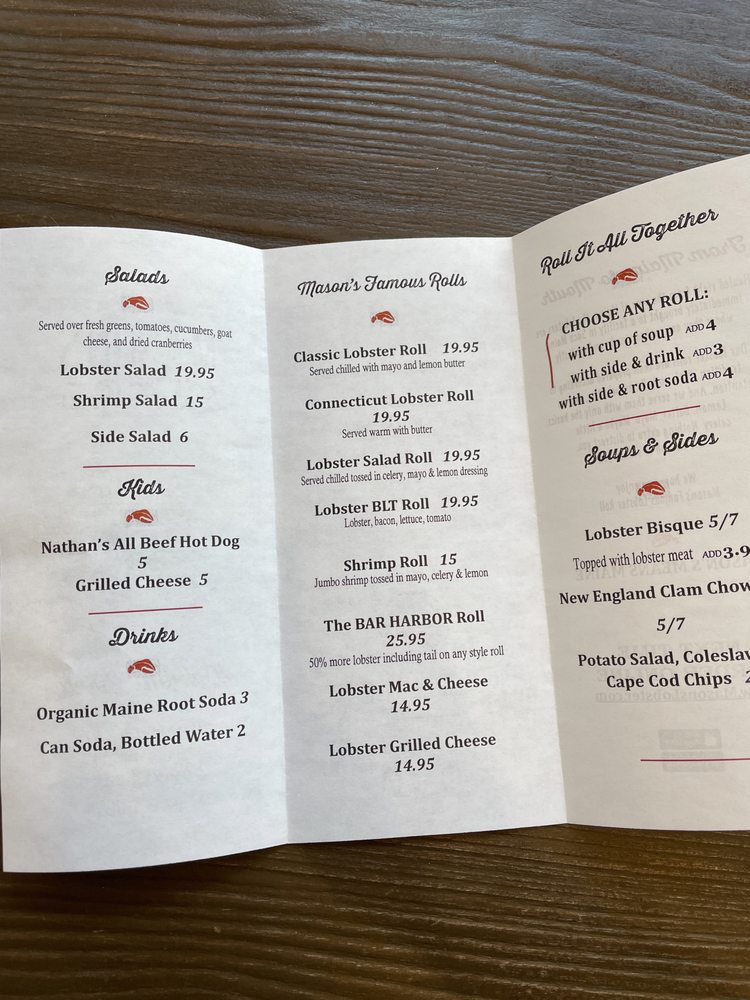 Salads
Served over fresh greens, tomatoes, cucumbers, goat
cheese, and dried cranberries
Lobster Salad 19.95
Shrimp Salad 15
Side Salad 6
Kids
Nathan's All Beef Hot Dog
5
Grilled Cheese 5
Drinks
Organic Maine Root Soda 3
Can Soda, Bottled Water 2
Mason's Famous Rolls
Classic Lobster Roll 19.95
Served chilled with mayo and lemon butter
Connecticut Lobster Roll
19.95
Served warm with butter
Lobster Salad Roll 19.95
Served chilled tossed in celery, mayo & lemon dressing
Lobster BLT Roll 19.95
Lobster, bacon, lettuce, tomato
Shrimp Roll 15
Jumbo shrimp tossed in mayo, celery & lemon
The BAR HARBOR Roll
25.95
50% more lobster including tail on any style roll
Lobster Mac & Cheese
14.95
Lobster Grilled Cheese
14.95
Roll It All Together
CHOOSE ANY ROLL:
with cup of soup ADD 4
with side & drink ADD 3
with side & root soda ADD 4
Soups & Sides
Lobster Bisque 5/7
Topped with lobster meat ADD 3.9
New England Clam Chow
5/7
Potato Salad, Coleslaw
Cape Cod Chips 2